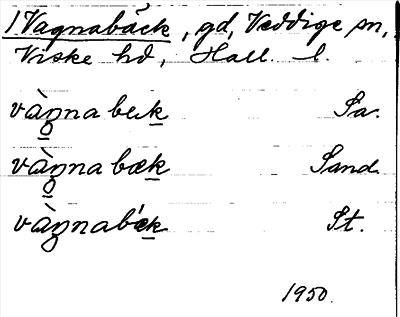 1. Vagnabäck, gd, Veddige sn,
Viske hd, Hall. l.
vàŋna bek Sa.
vàŋna bæk Sand.
vàŋnabǽk St.
1950.